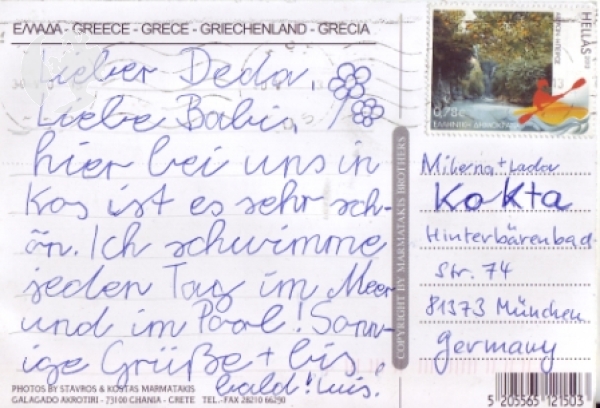 ΕΛΛΑΔΑ - GREECE - GRECE - GRIECHENLAND - GRECIA
Lieber Deda,
Liebe Babi,
hier bei uns in
Kos ist es sehr sch-
ön. Ich schwimme
jeden Tag im Meer
und im Pool! Sonn-
ige Grüße + bis
bald! Luis.
PHOTOS BY STAVROS & KOSTAS MARMATAKIS
GALAGADO AKROTIRI - 73100 CHANIA - CRETE TEL.-FAX 28210 66290
COPYRIGHT BY MARMATAKIS BROTHERS
HELLAS
0,78€
ΕΛΛΗΝΙΚΗ ΔΗΜΟΚΡΑΤΙΑ
Milena + Lada
Kokta
Hinterbärenbad-
Str. 74
81373 München
Germany
5 205565 121503